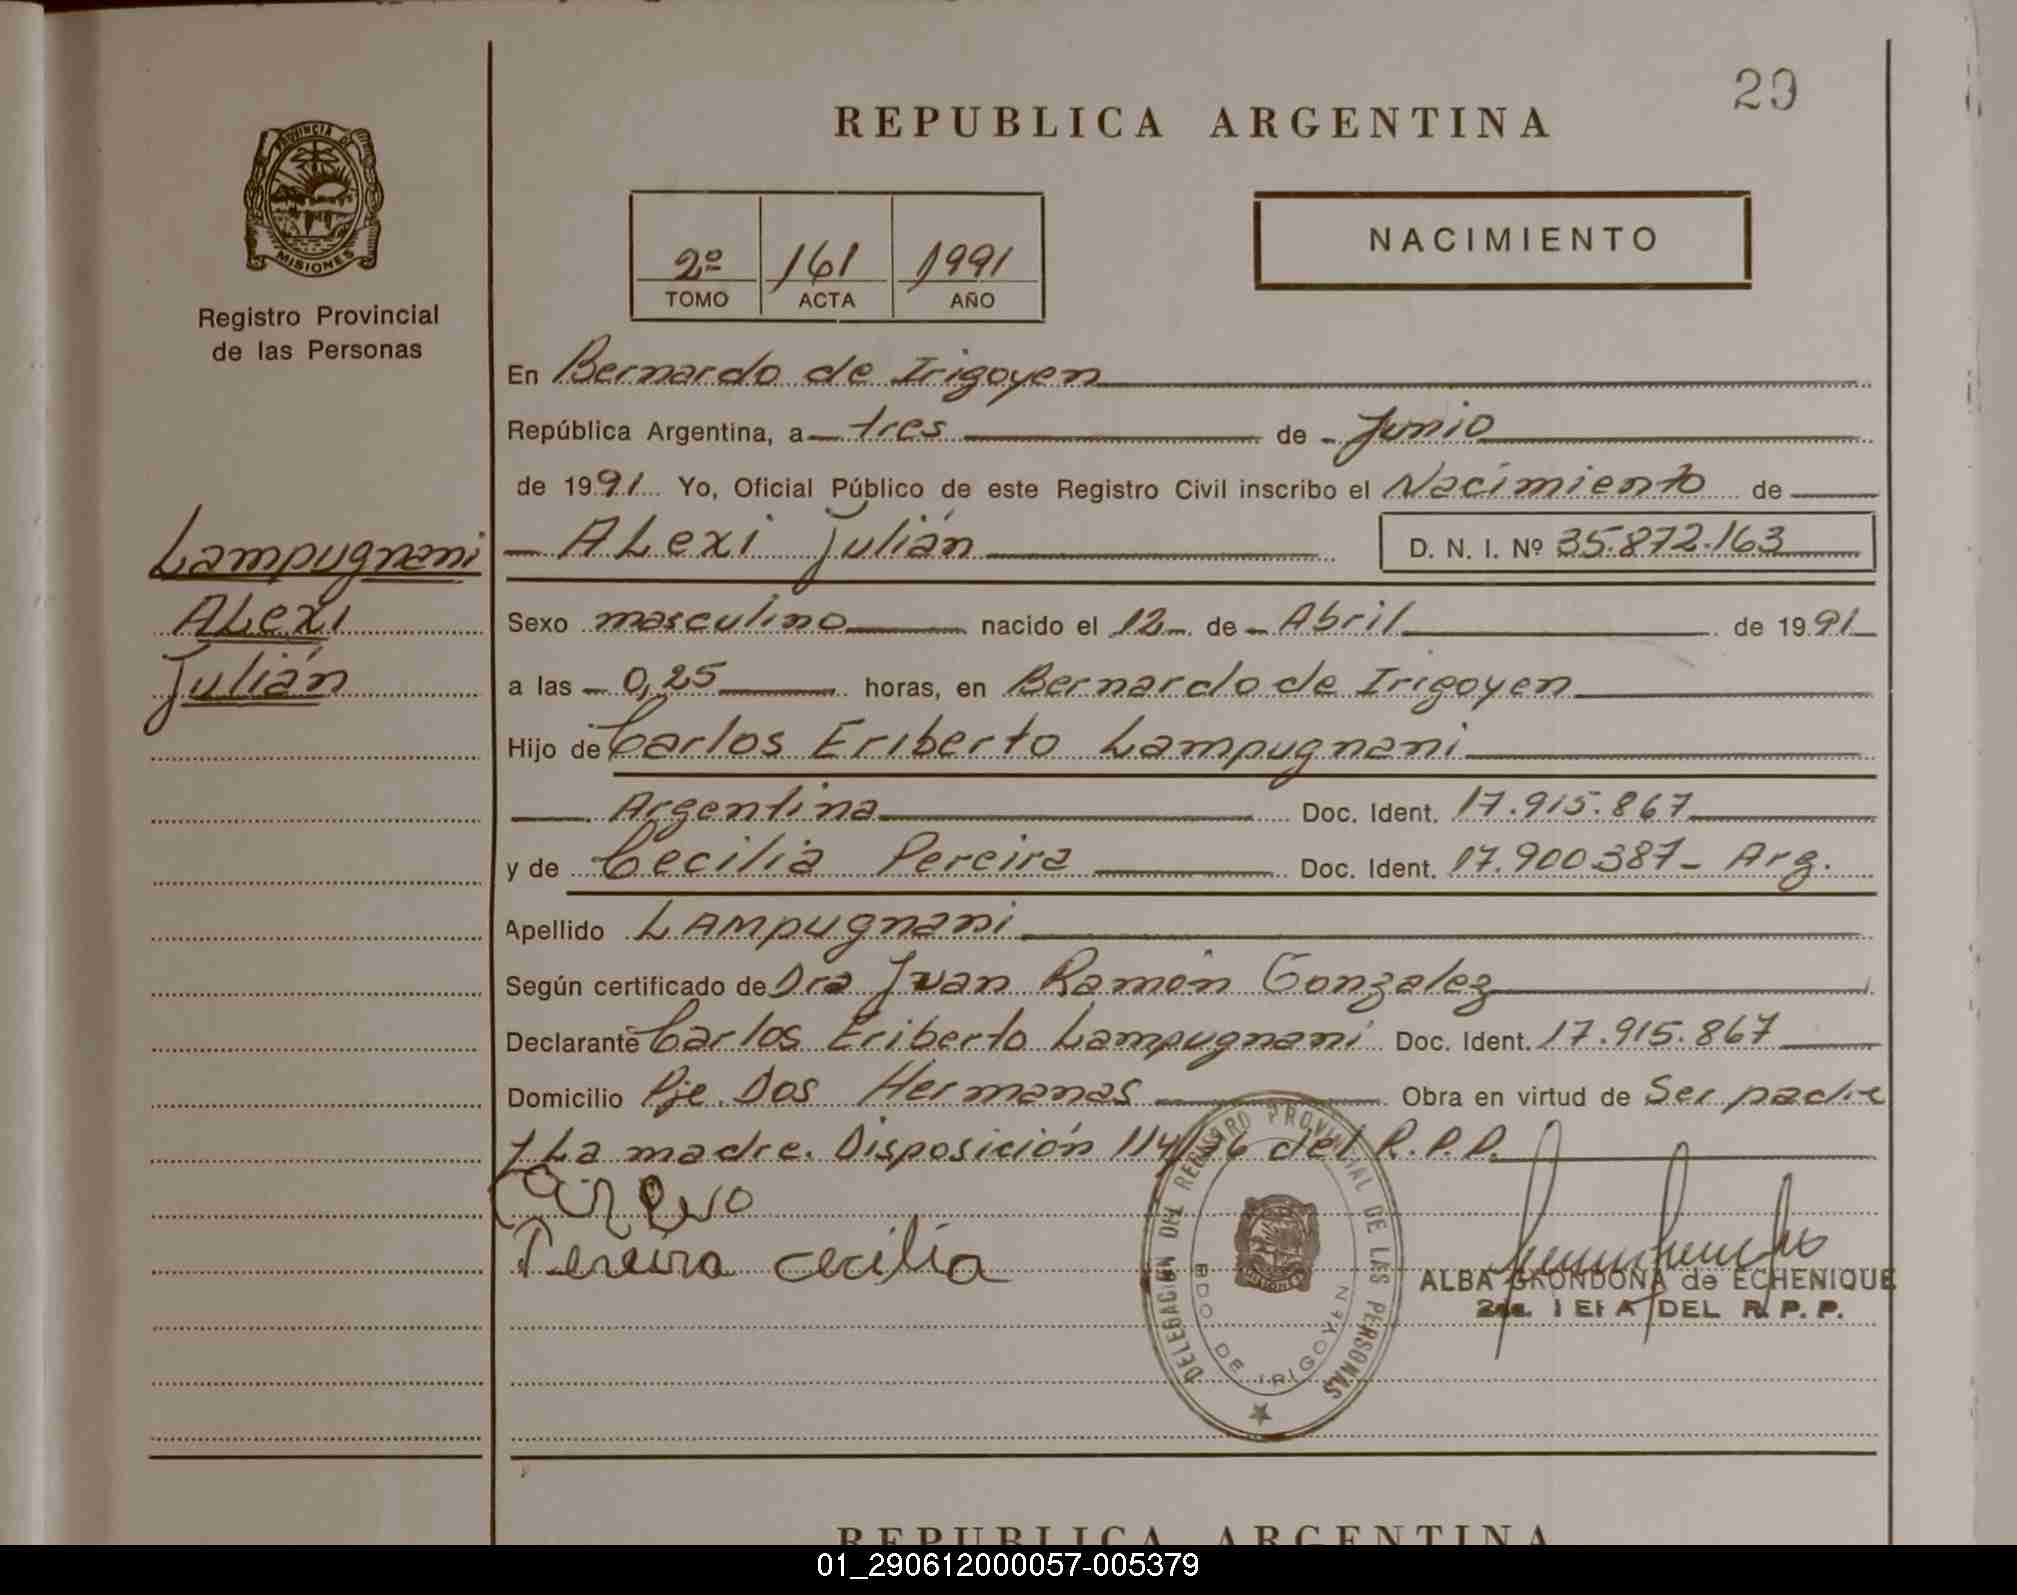 29
REPUBLICA ARGENTINA
PROVINCIA DE
MISIONES
Registro Provincial
de las Personas
2º 161 1991
TOMO ACTA AÑO
NACIMIENTO
En Bernardo de Irigoyen
República Argentina, a tres de Junio
de 1991 Yo, Oficial Público de este Registro Civil inscribo el Nacimiento de
Lampugnani
ALexi
Julián
ALexi Julián D. N. I. Nº 35.872.163
Sexo masculino nacido el 12 de Abril de 1991
a las 0,25 horas, en Bernardo de Irigoyen
Hijo de Carlos Eriberto Lampugnani
Argentina Doc. Ident. 17.915.867
y de Cecilia Pereira Doc. Ident. 17.900387- Arg.
Apellido LAmpugnani
Según certificado de Dra Juan Ramón Gonzalez
Declarante Carlos Eriberto Lampugnani Doc. Ident. 17.915.867
Domicilio Pje. Dos Hermanas Obra en virtud de Ser padre
y La madre. Disposición 114/76 del R.P.P.
Pereira cecilia
DELEGACION DEL REGISTRO PROVINCIAL DE LAS PERSONAS
BDO DE IRIGOYEN
ALBA GRONDONA de ECHENIQUE
2da. JEFA DEL R. P. P.
REPUBLICA ARGENTINA
01_290612000057-005379